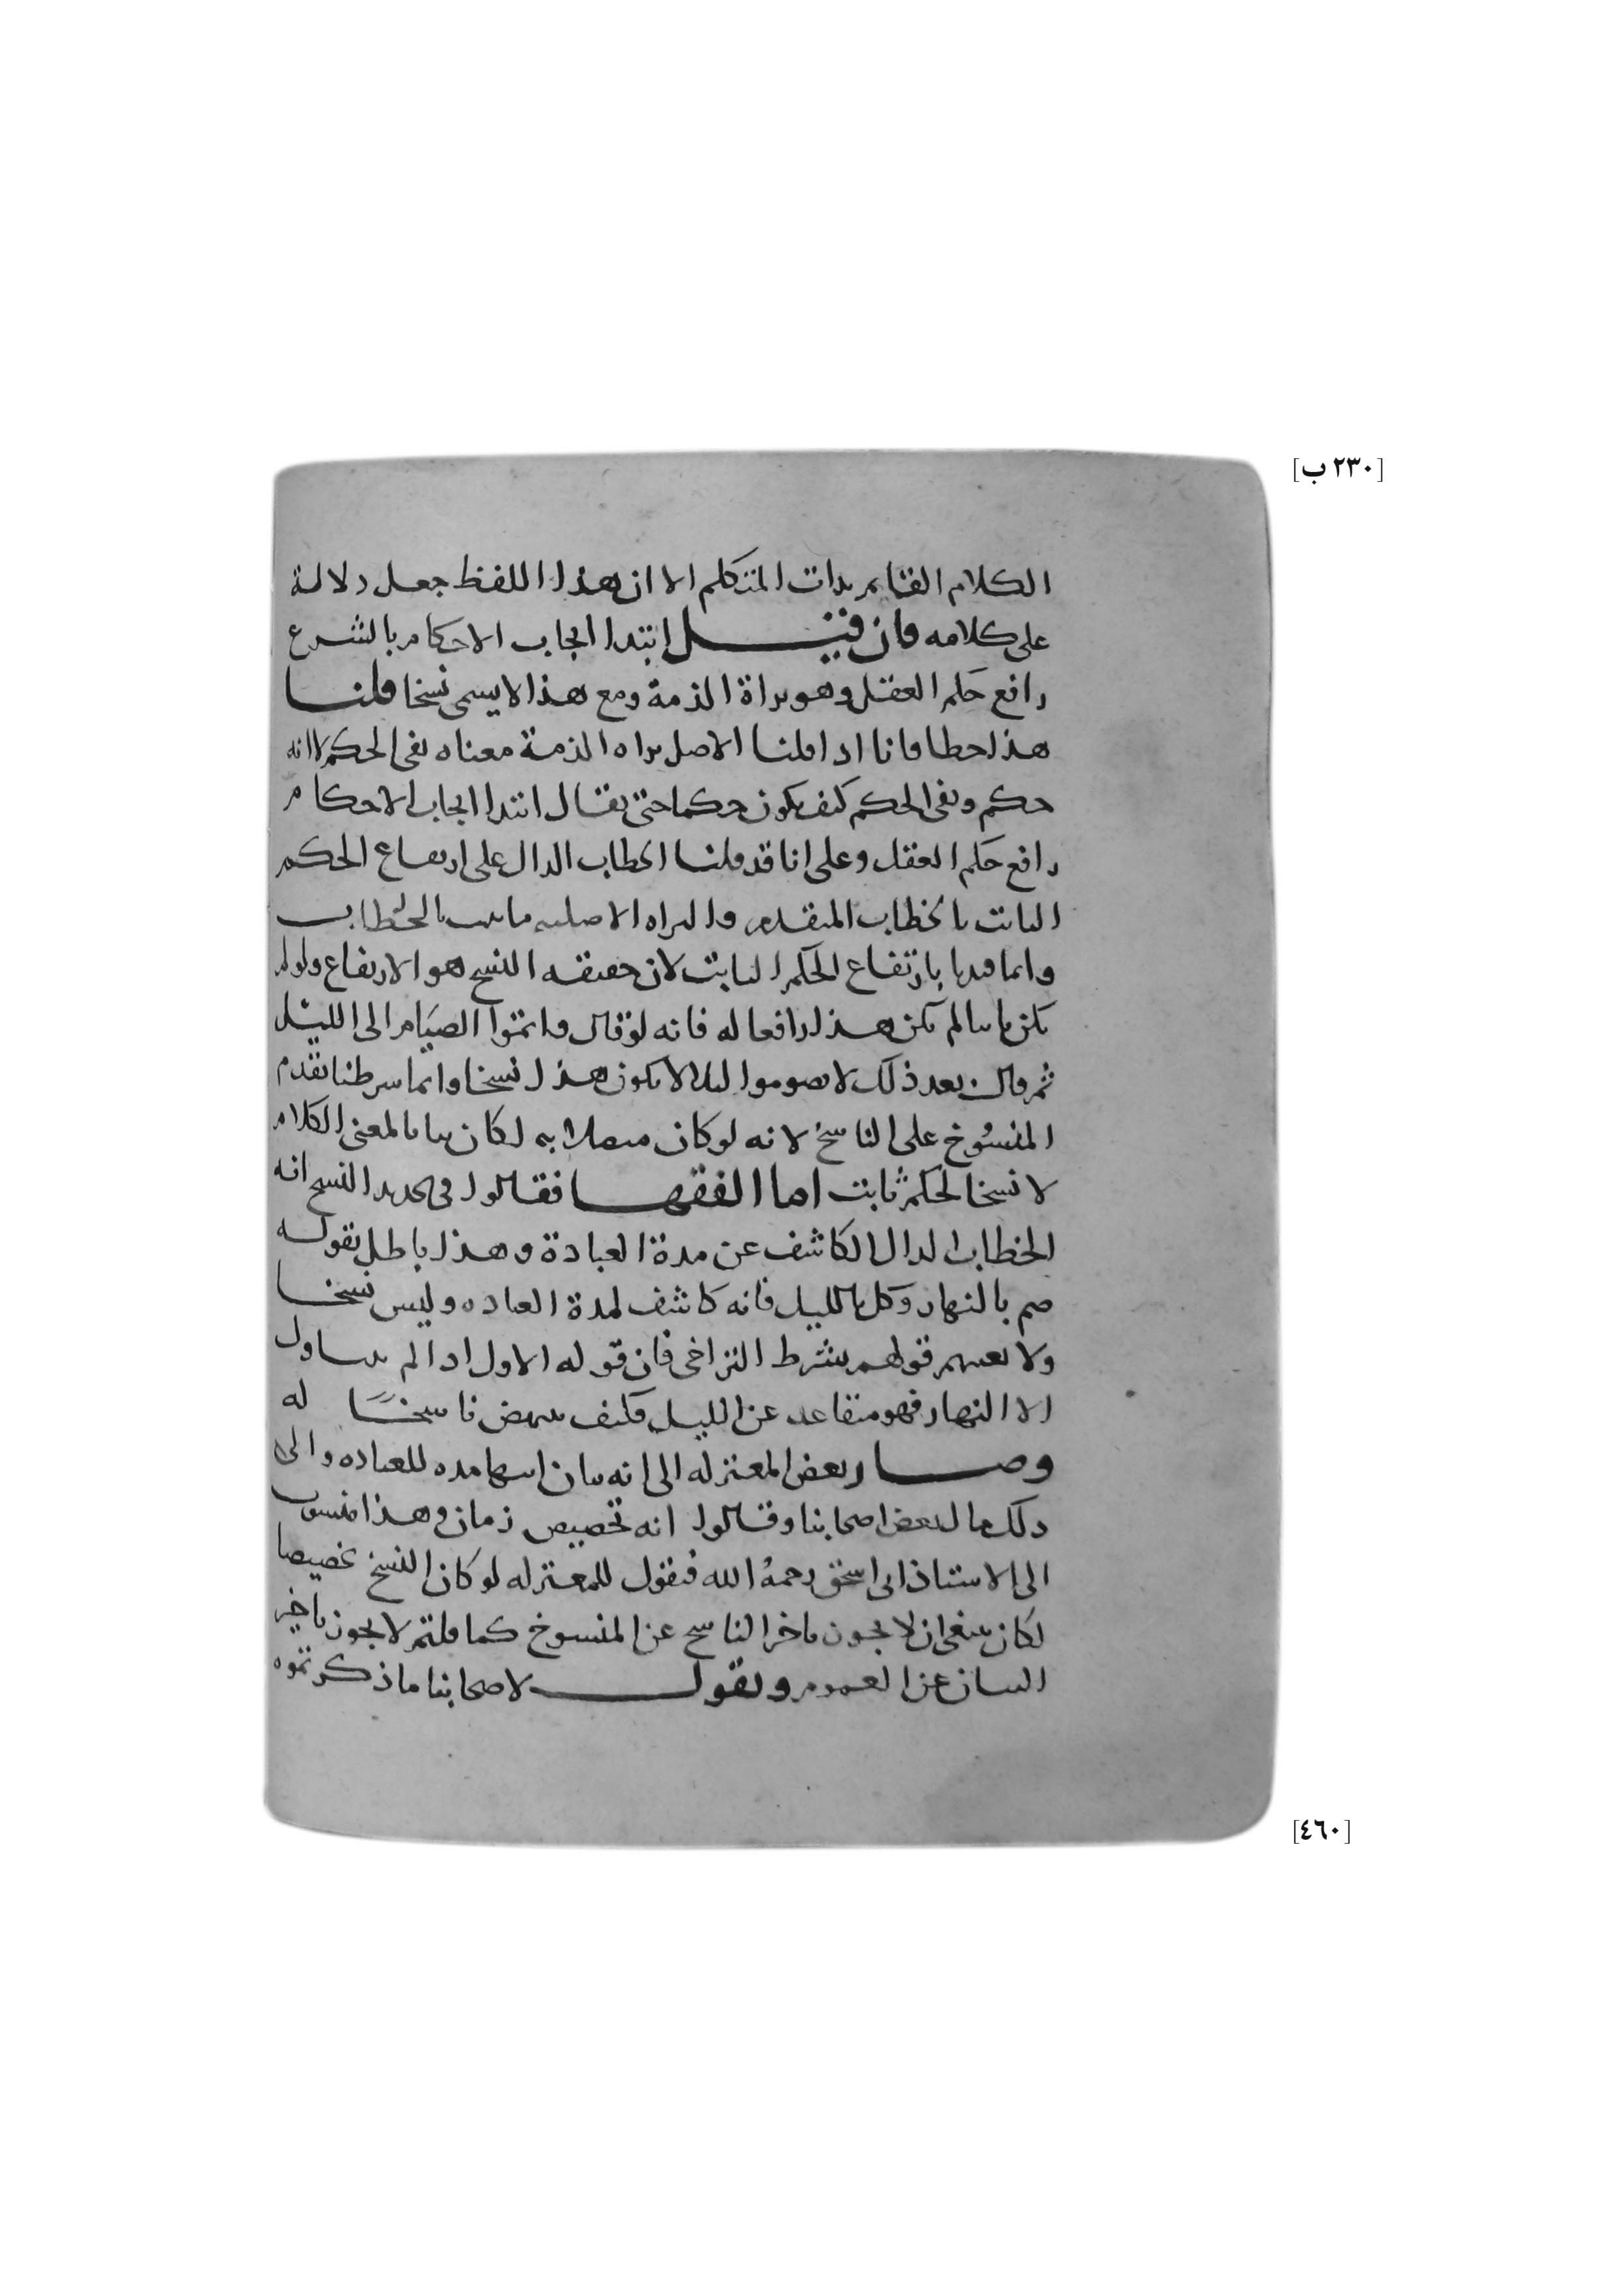 [٢٣٠ ب]
الكلام القايم بذات المتكلم الا ان هذا اللفظ جعل دلالة
على كلامه فان قيل ابتدا ايجاب الاحكام بالشرع
رافع حكم العقل وهو براة الذمة ومع هذا لا يسمى نسخا قلنا
هذا خطا فانا اذا قلنا الاصل براه الذمة معناه نفى الحكم لا انه
حكم ونفى الحكم كيف يكون حكما حتى يقال ابتدا ايجاب الاحكام
رافع حكم العقل وعلى انا قد قلنا الخطاب الدال على ارتفاع الحكم
الثابت بالخطاب المتقدم والبراه الاصليه ما ثبت بالخطاب
وانما قيدنا بارتفاع الحكم الثابت لان حقيقه النسخ هو الارتفاع ولو لم
يكن ثابتا لم يكن هذا رافعا له فانه لو قال واتموا الصيام الى الليل
ثم قال بعد ذلك لا تصوموا ليلا لا يكون هذا نسخا وانما شرطنا تقدم
المنسوخ على الناسخ لانه لو كان متصلا به لكان بيانا لمعنى الكلام
لا نسخا لحكم ثابت اما الفقها فقالوا فى تحديد النسخ انه
الخطاب الدال الكاشف عن مدة العبادة وهذا باطل بقوله
صم بالنهار وكل بالليل فانه كاشف لمدة العباده وليس نسخا
ولا يغنيهم قولهم بشرط التراخى فان قوله الاول اذا لم يتناول
الا النهار فهو متقاعد عن الليل فكيف ينهض ناسخا له
وصار بعض المعتزله الى انه بيان انتها مده للعباده والى
ذلك مال بعض اصحابنا وقالوا انه تخصيص زمان وهذا منسوب
الى الاستاذ ابى اسحق رحمه الله فنقول للمعتزله لو كان النسخ تخصيصا
لكان ينبغى ان لا يجوز تاخر الناسخ عن المنسوخ كما قلتم لا يجوز تاخير
البيان عن العموم ونقول لاصحابنا ما ذكرتموه
[٤٦٠]